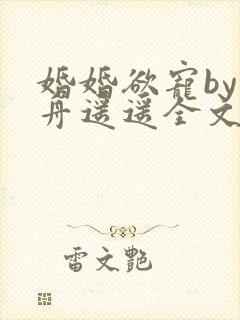 婚婚欲宠by
丹遥遥全文
雷文艷